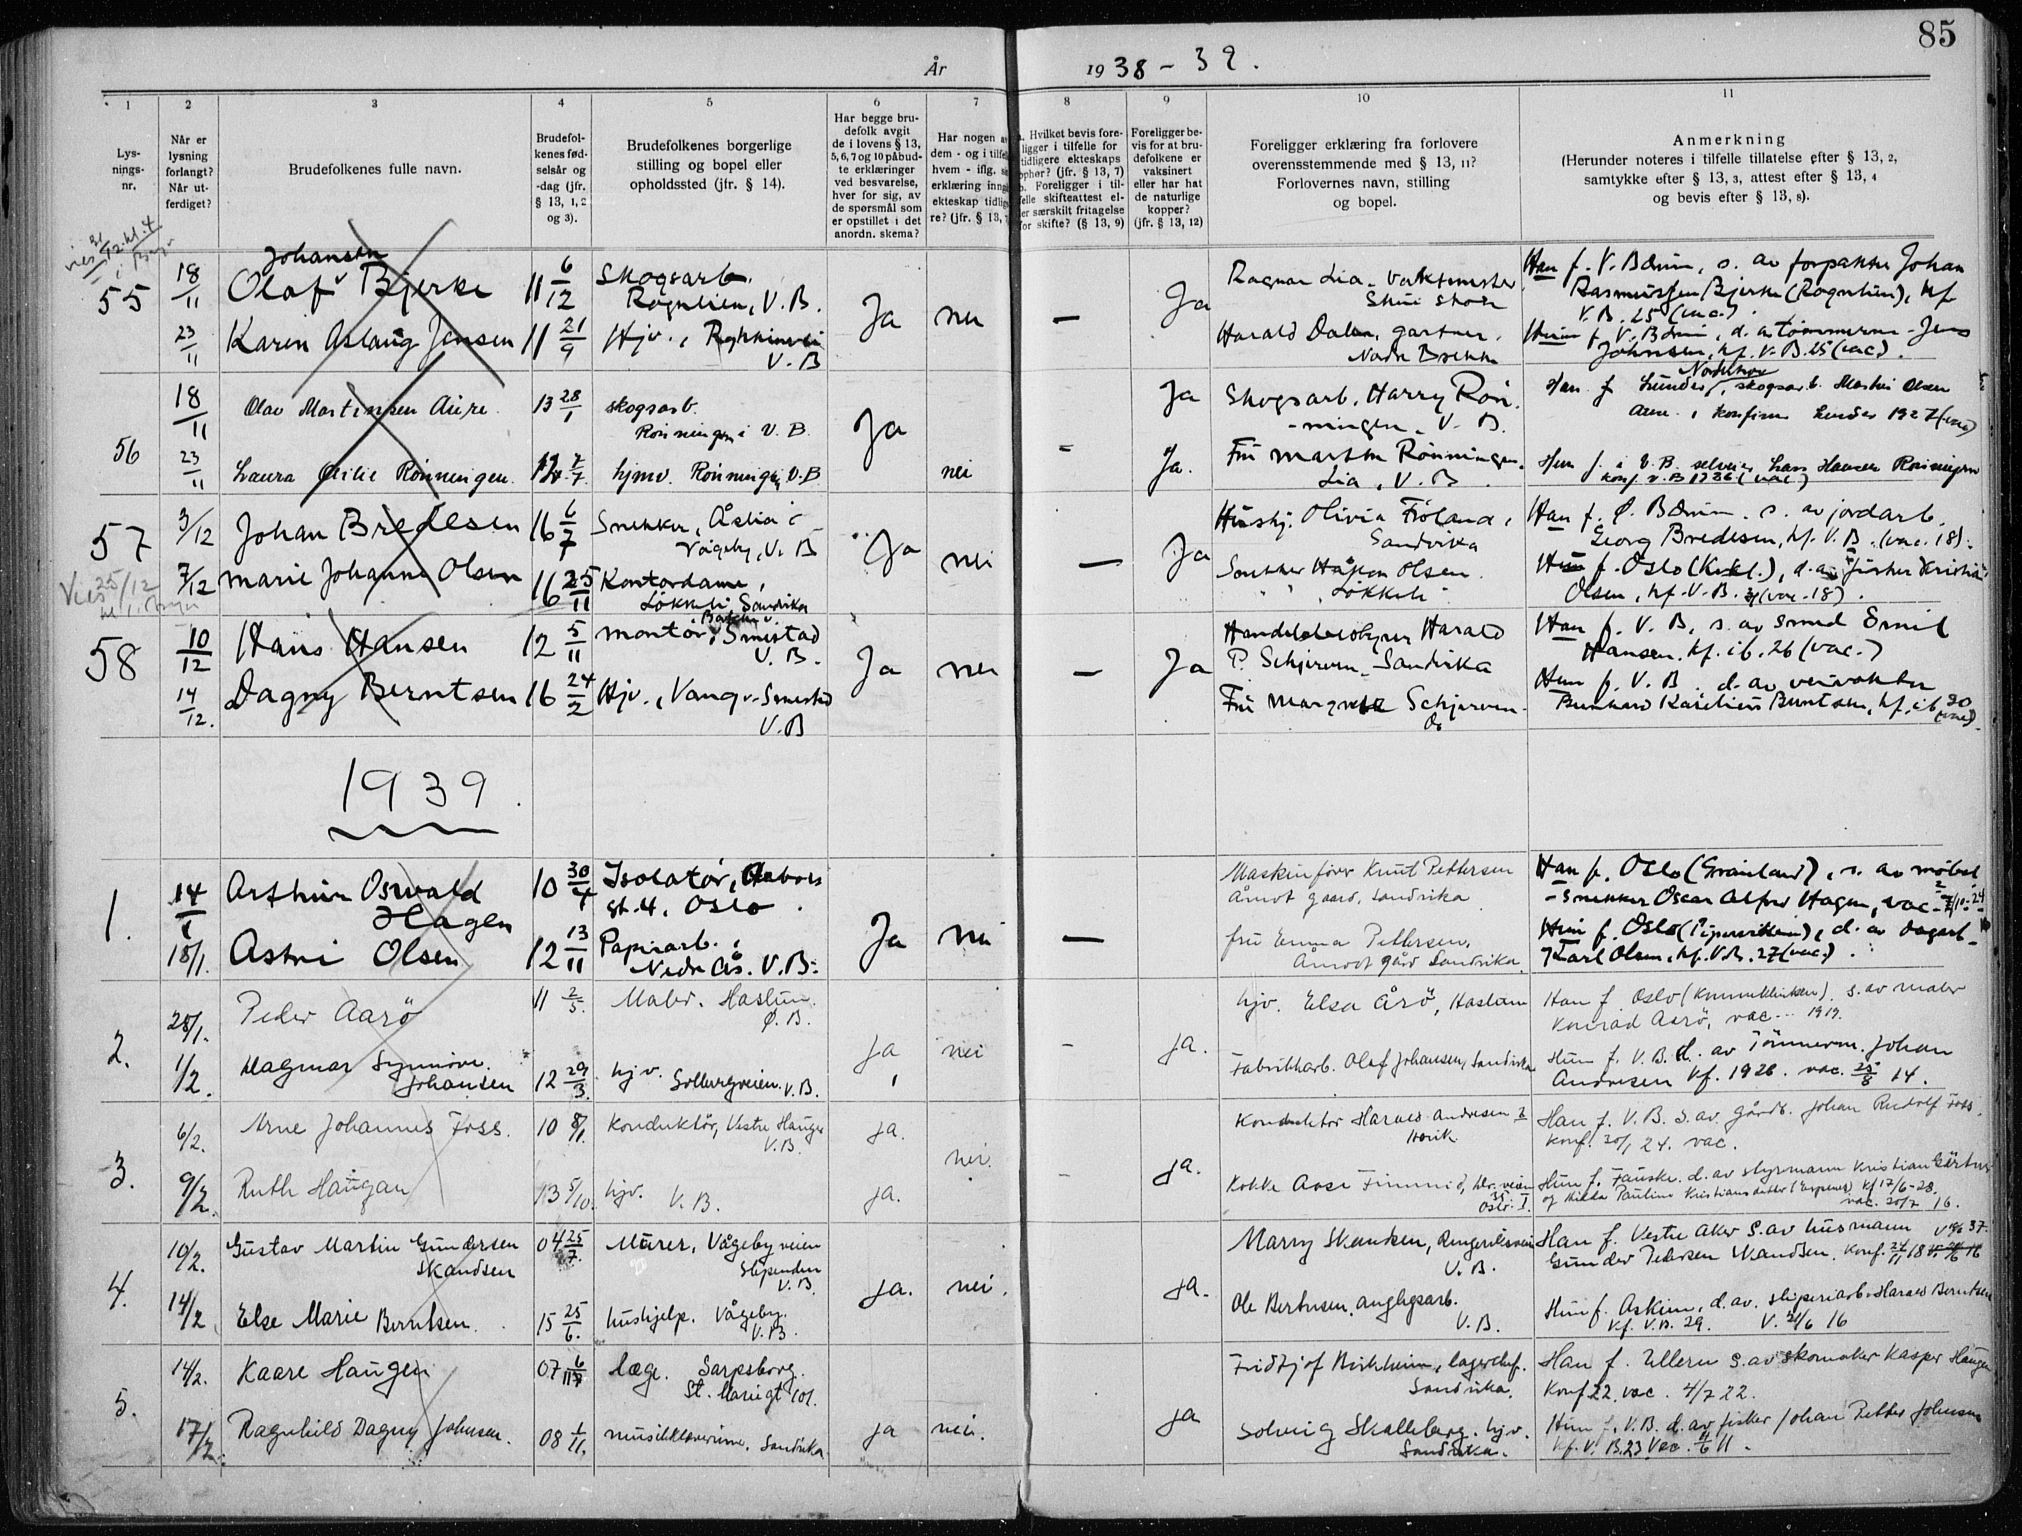 85
År 1938-39.
1 2 3 4 5 6 7 8 9 10 11
Lys-
nings-
nr.
Når er
lysning
forlangt?
Når ut-
ferdiget?
Brudefolkenes fulle navn.
Brudefol-
kenes fød-
selsår og
-dag (jfr.
§ 13, 1, 2
og 3).
Brudefolkenes borgerlige
stilling og bopel eller
opholdssted (jfr. § 14).
Har begge bru-
defolk avgit
de i lovens § 13,
5, 6, 7 og 10 påbud-
te erklæringer
ved besvarelse,
hver for sig, av
de spørsmål som
er opstillet i det
anordn. skema?
Har nogen
dem - og i
hvem - iflg.
erklæring
ekteskap
re? (jfr. § 13,
Hvilket bevis fore-
ligger i tilfelle for
tidligere ekteskaps
ophør? (jfr. § 13, 7)
b. Foreligger i til-
felle skifteattest el-
er særskilt fritagelse
for skifte? (§ 13, 9)
Foreligger be-
vis for at bru-
defolkene er
vaksinert
eller har hat
de naturlige
kopper?
(jfr. § 13, 12)
Foreligger erklæring fra forlovere
overensstemmende med § 13, 11?
Forlovernes navn, stilling
og bopel.
Anmerkning
(Herunder noteres i tilfelle tillatelse efter § 13, 2,
samtykke efter § 13, 3, attest efter § 13, 4
og bevis efter § 13, 8).
55
18/11
Johansen
Olaf Bjerke
11 6/12
Skogsarb.
Rognlien, V. B.
Ja
nei
—
Ja
Ragnar Lia - vaktmester
Skui skole
Han f. V. Bærum, s. av forpakter Johan
Rasmussen Bjerke (Rognlien), kf
V. B. 25 (vac.).
23/11
Karin Aslaug Jensen
11 21/9
Hjv.,
V. B
Harald Dalen, gartner,
Nedre
Hun f. V. Bærum, d. av tømmerm. Jens
Johnsen, kf. V. B. 25 (vac).
56
18/11
Olav Martinsen Aure
13 28/1
skogsarb.
Rønningen i V. B.
Ja
Ja
Skogsarb. Harry Røn-
ningen. V. B.
Han f. Lunder, skogsarb. Martin Olsen
Aure, konfirm Lunder 1927 (vac)
23/11
Laura Otilie Rønningen
7/7
hjmv. Rønningen V.B
nei
Ja.
Fru Marthe Rønningen.
Lia, V. B.
Hun f. i V. B. selveier Lars Hansen Rønningen
konf. V. B 1926 (vac)
57
3/12
Johan Bredesen
16 6/7
Snekker, Åslia i
Vågeby, V. B
Ja
nei
—
Ja
Hushj. Olivia Frøland,
Sandvika
Han f. Ø. Bærum. s. av jordarb.
Georg Bredesen, kf. V. B. (vac. 18).
7/12
Marie Johanne Olsen
16 25/11
Kontordame,
Løkkeli, Sandvika
Snekker Håkon Olsen
Løkkeli
Hun f. Oslo, d. av fisker Kristian
Olsen, kf. V. B. 31 (vac. 18).
58
10/12
Hans Hansen
12 5/11
montør, Smestad
V. B.
Ja
nei
—
Ja
Harald
P. Schjerven, Sandvika
Han f. V. B, s. av smed Emil
Hansen, kf. ib. 26 (vac.)
14/12.
Dagny Berntsen
16 24/2
Hjv., Vang v. Smestad
V. B
Fru Margrete Schjerven
Do
Hun f. V. B d. av veivokter
Bernhard Karelius Berntsen, kf. ib 30
(vac).
1939.
1.
14/1
Arthur Oswald
Hagen
10 30/4
Isolatør,
gt. 4, Oslo.
Ja
Nei
—
Maskinfører Knut Pettersen
Åmot gaard, Sandvika
Han f. Oslo (Grønland), s. av møbel-
snekker Oscar Alfred Hagen, vac.
18/1.
Astri Olsen
12 13/11
Papirarb.,
Nedre Ås. V. B.
fru Emma Pettersen,
Åmot gård Sandvika.
Hun f. Oslo (Pipervikken), d. av dagarb.
Karl Olsen, kf. V.B. 27 (vac.).
2.
28/1.
Peder Aarø
11 2/5.
Maler. Haslum.
Ø. B.
Ja
nei
-
ja.
hjv. Elsa Årø, Haslum
Han f. Oslo. s. av maler
Konrad Aarø, vac... 1919.
1/2.
Dagmar Synnøve
Johansen
12 29/3.
hjv. Solbergveien. V. B.
Fabrikkarb. Olaf Johansen, Sandvika
Hun f. V. B. d. av Tømmerm. Johan
Andresen kf. 1926. vac. 25/8 14.
3.
6/2.
Arne Johannes Foss.
10 8/1.
Konduktør, Vestre Haugen
V. B.
ja.
nei.
-
ja.
Konduktør Harald Andresen
Høvik
Han f. V. B. s. av gårdb. Johan Rudolf Foss.
konf. 20/1 24. vac.
9/2.
Ruth Haugan
13 5/10.
hjv. V. B.
ja.
Kokke Aase
Oslo. I.
Hun f. Fauske. d. av styrmann Kristian Gärtner
og Hilda Pauline Kristiansdatter kf 17/6-28.
vac. 20/7 16.
4.
10/2.
Gustav Martin Gundersen
Skandsen
04 25/7.
Murer, Vågebyveien
Slependen
V. B.
ja.
nei.
ja.
Marry Skandsen, Ringeriksveien
V. B.
Han f. Vestre Aker s. av husmann
Gunder Pedersen Skandsen. konf. 24/11 18
14/2
Else Marie Berntsen.
15 25/6.
hushjelp. Vågeby.
V. B.
Ole Berntsen. anleggsarb.
V. B.
Hun f. Askim, d. av. sliperiarb. Harald Berntsen
kf. V. B. 29. V. 24/6 16
5.
14/2.
Kaare Haugen
07
læge. Sarpsborg.
St. Mariegt 101.
ja
nei.
ja
Fridtjof Birkheim, lagerchef.
Sandvika.
Han f. Ullern s. av skomaker Kasper Haugen
konf 22. vac. 4/7 22.
17/2.
Ragnhild Dagny Johnsen.
08 1/11.
musikklærerinne, Sandvika
Solveig Skalleberg. hjv.
Sandvika.
Hun f. V. B. d. av fisker Johan Petter Johnsen
kf. V. B. 23 Vac. 4/6 11.